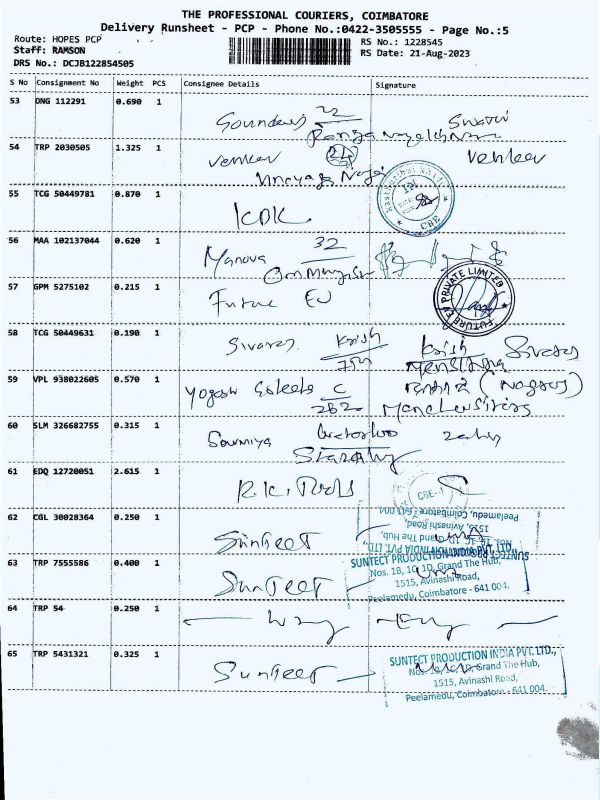 THE PROFESSIONAL COURIERS, COIMBATORE
Delivery Runsheet - PCP - Phone No.:0422-3505555 - Page No.:5
Route: HOPES PCP
RS No.: 1228545
Staff: RAMSON
RS Date: 21-Aug-2023
DRS No.: DCJB122854505
S No Consignment No Weight PCS Consignee Details Signature
53 ONG 112291 0.690 1
Soundew 22 Swathi
54 TRP 2030505 1.325 1
Venkev 24 Venkev
Vinayaga Nagar
55 TCG 50449781 0.870 1
KDK
CBE
56 MAA 102137044 0.620 1
Manova 32
57 GPM 5275102 0.215 1
Future EV
FUTURE EV PRIVATE LIMITED
58 TCG 50449631 0.190 1
Sivares Krish Krish Sivares
59 VPL 938022605 0.570 1
Yogesh C
262
60 SLM 326682755 0.315 1
Sowmiya
61 EDQ 12720051 2.615 1
R.K. Tools
CBE-1
62 CGL 30028364 0.250 1
Suntect
Nos. 1B, 1C, 1D, Grand The Hub,
1515, Avinashi Road,
Peelamedu, Coimbatore - 641 004.
63 TRP 7555586 0.400 1
Suntect
SUNTECT PRODUCTION INDIA PVT. LTD.,
Nos. 1B, 1C, 1D, Grand The Hub,
1515, Avinashi Road,
Peelamedu, Coimbatore - 641 004.
64 TRP 54 0.250 1
65 TRP 5431321 0.325 1
Suntect
SUNTECT PRODUCTION INDIA PVT. LTD.,
Nos. 1B, 1C, 1D, Grand The Hub,
1515, Avinashi Road,
Peelamedu, Coimbatore - 641 004.